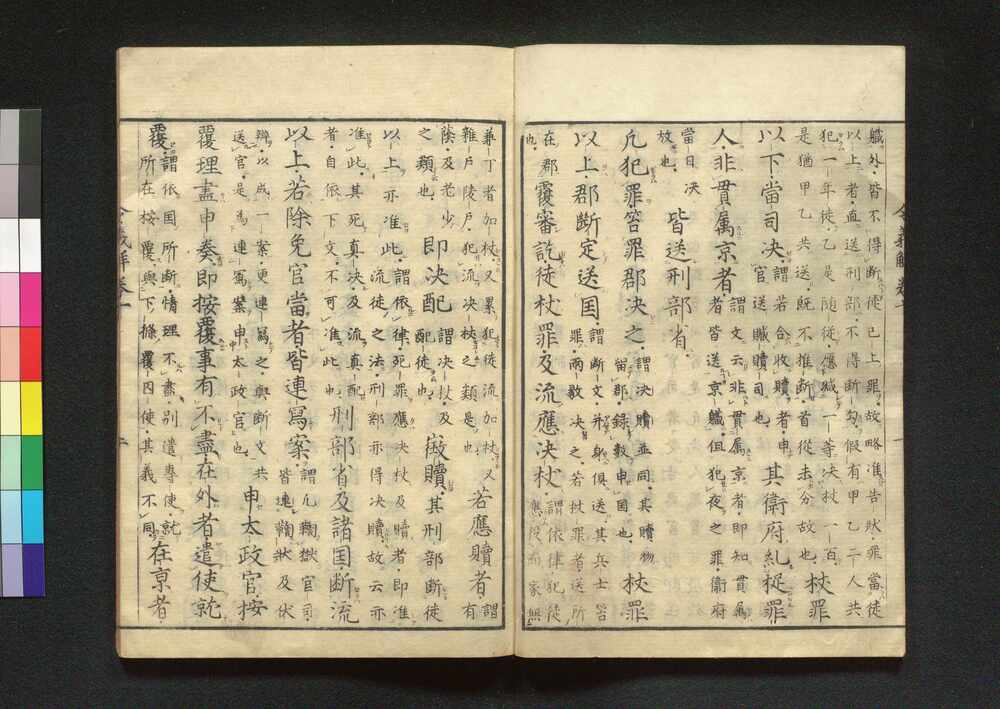 贓外皆不得断使已上罪故略准告状罪當徒
以上者直送刑部不得断勾假有甲乙二人共
犯一年徒乙是随従應減一等决杖一百
是猶甲乙共送既不推断首従未分故也
杖罪
以下當司决
謂若合收贖者申
官送贓贖司也
其衛府糺捉罪
人非貫属京者
謂文云非貫属京者即知貫属
者皆送京職但犯夜之罪衛府
當日决
放也
皆送刑部省
凡犯罪笞罪郡决之
謂决贖並同其贖物
留郡録数申国也
杖罪
以上郡断定送国
謂断文并身俱送其兵士笞
罪兩敷决之若杖罪者送所
在郡
也
覆審訖徒杖罪及流應决杖
謂依律犯徒
應役而家無
兼丁者加杖又累犯徒流加杖又
雜戸陵戸犯流决杖之類是也
若應贖者
謂
有
蔭及老少
之類也
即决配
謂决杖及
配徒也
徴贖其刑部断徒
以上亦准此
謂依律死罪應决杖及贖者即准
流徒之法刑部亦得决贖故云亦
准此其死真决及流真配
者自依下文不可准此也
刑部省及諸国断流
以上若除免官當者皆連寫案
謂凡鞫獄官司
皆連鞫状及伏
辨以成一案更連寫之與断文共
送官是為連寫案申太政官也
申太政官按
覆理盡申奏即按覆事有不盡在外者遣使就
覆
謂依国所断情理不盡別遣専使就
所在按覆與下條覆囚使其義不同
在京者